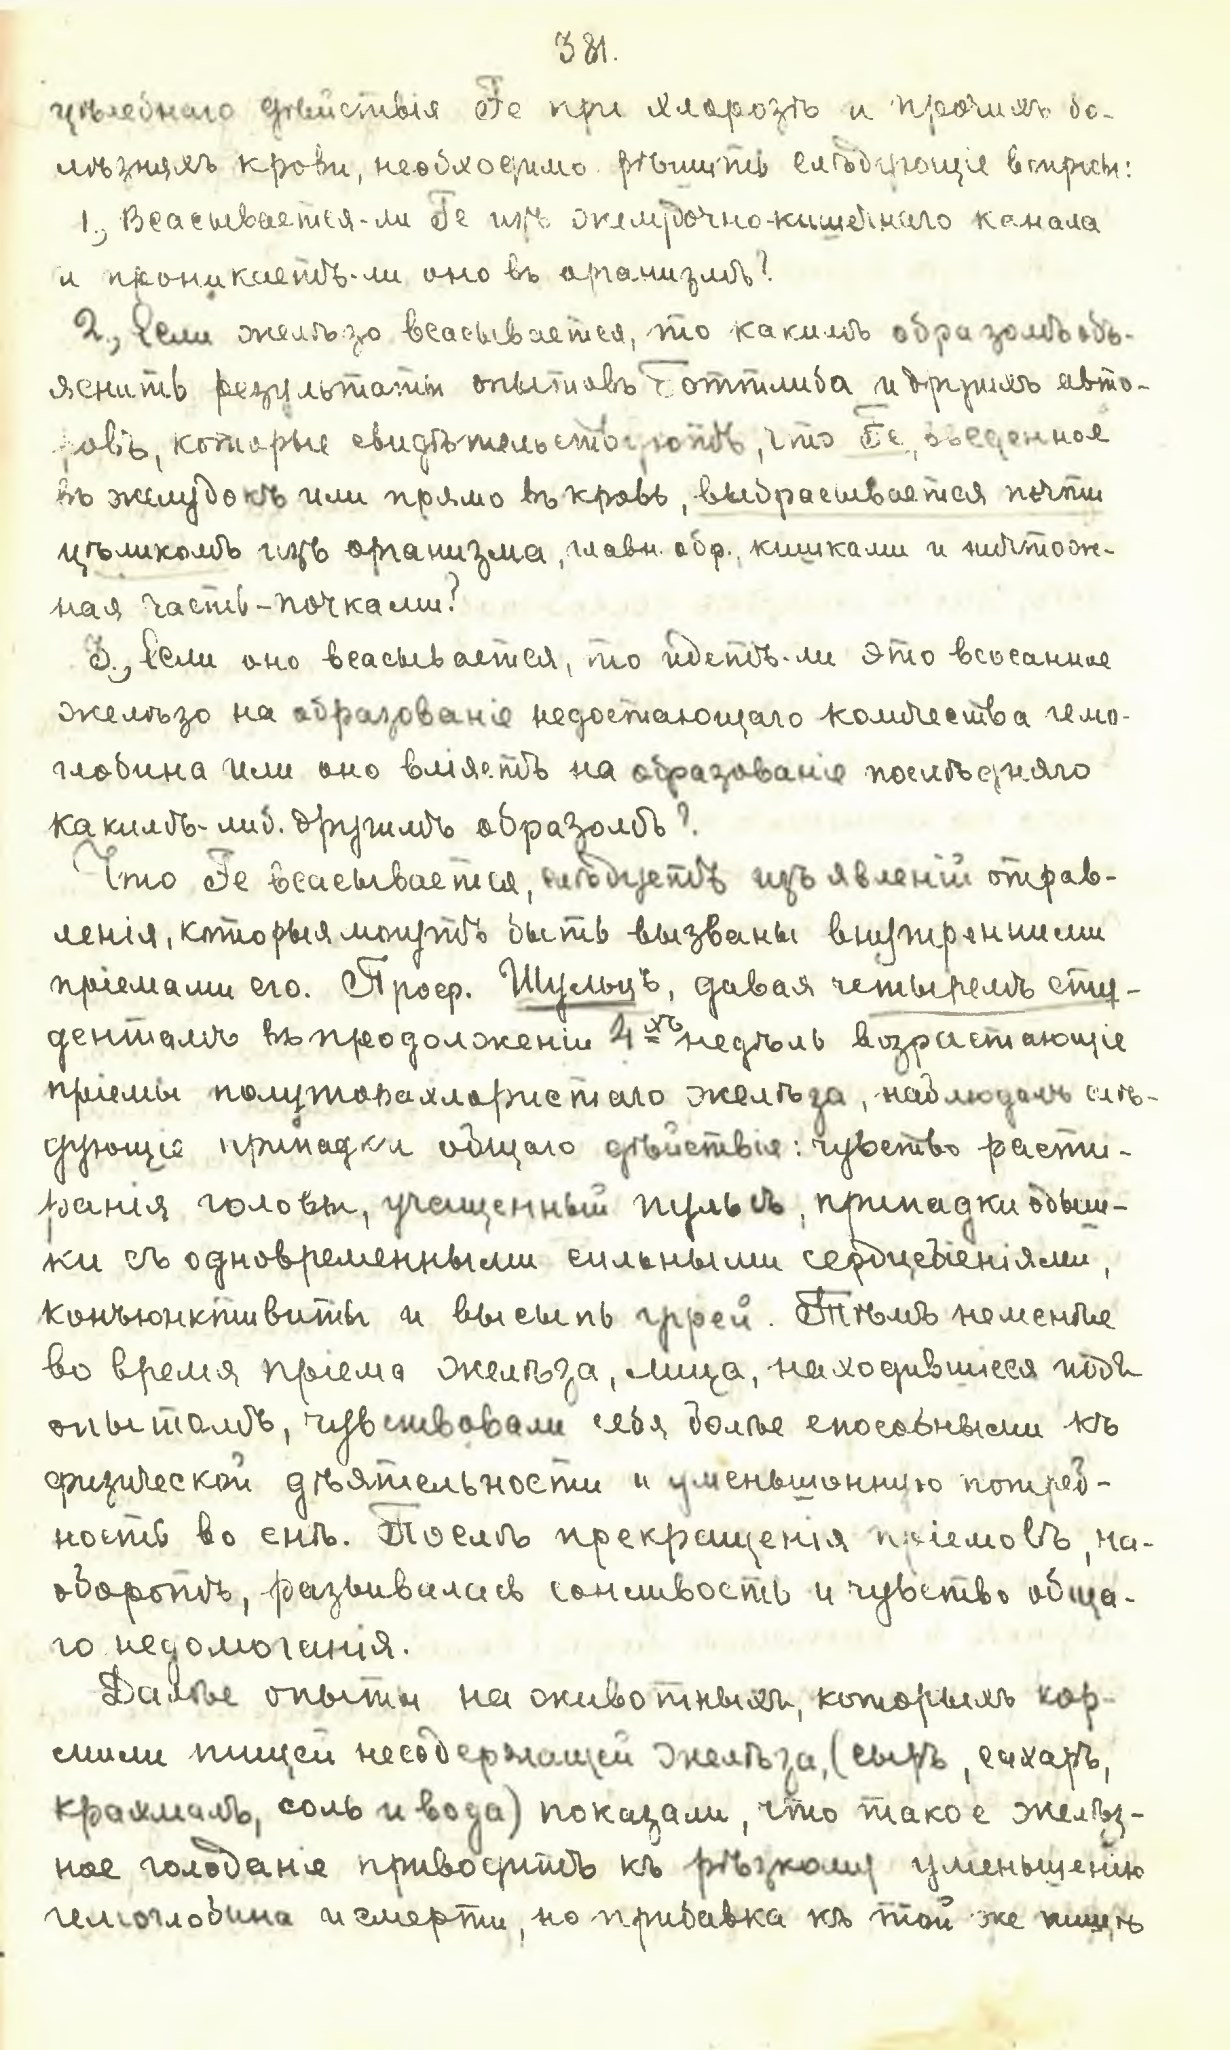 381.
цѣлебнаго дѣйствія Fe при хлорозѣ и прочихъ бо-
лѣзняхъ крови, необходимо рѣшить слѣдующіе вопросы:
1., Всасывается-ли Fe изъ желудочно-кишечнаго канала
и проникаетъ-ли оно въ организмъ?
2., Если желѣзо всасывается, то какимъ образомъ объ-
яснить результаты опытовъ Готтлиба и другихъ авто-
ровъ, которые свидѣтельствуютъ, что Fe, введенное
въ желудокъ или прямо въ кровь, выбрасывается почти
цѣликомъ изъ организма, главн. обр., кишками и ничтож-
ная часть-почками?
3., Если оно всасывается, то идетъ-ли это всосанное
желѣзо на образованіе недостающаго количества гемо-
глобина или оно вліяетъ на образованіе послѣдняго
какимъ-либ. другимъ образомъ?
Что Fe всасывается, слѣдуетъ изъ явленій отрав-
ленія, которыя могутъ быть вызваны внутренними
пріемами его. Проф. Шульцъ, давая четыремъ сту-
дентамъ въ продолженіи 4хъ недѣль возрастающіе
пріемы полуторахлористаго желѣза, наблюдалъ слѣ-
дующіе припадки общаго дѣйствія: чувство расти-
ранія головы, учащенный пульсъ, припадки одыш-
ки съ одновременными сильными сердцебіеніями,
конъюнктивиты и высыпь угрей. Тѣмъ неменѣе
во время пріема желѣза, лица, находившіеся подъ
опытомъ, чувствовали себя болѣе способными къ
физической дѣятельности и уменьшонную потреб-
ность во снѣ. Послѣ прекращенія пріемовъ, на-
оборотъ, развивалась сонливость и чувство обща-
го недомоганія.
Далѣе опыты на животныхъ, которыхъ кор-
мили пищей несодержащей желѣза, (сыръ, сахаръ,
крахмалъ, соль и вода) показали, что такое желѣз-
ное голоданіе приводитъ къ рѣзкому уменьшенію
гемоглобина и смерти, но прибавка къ той же пищѣ